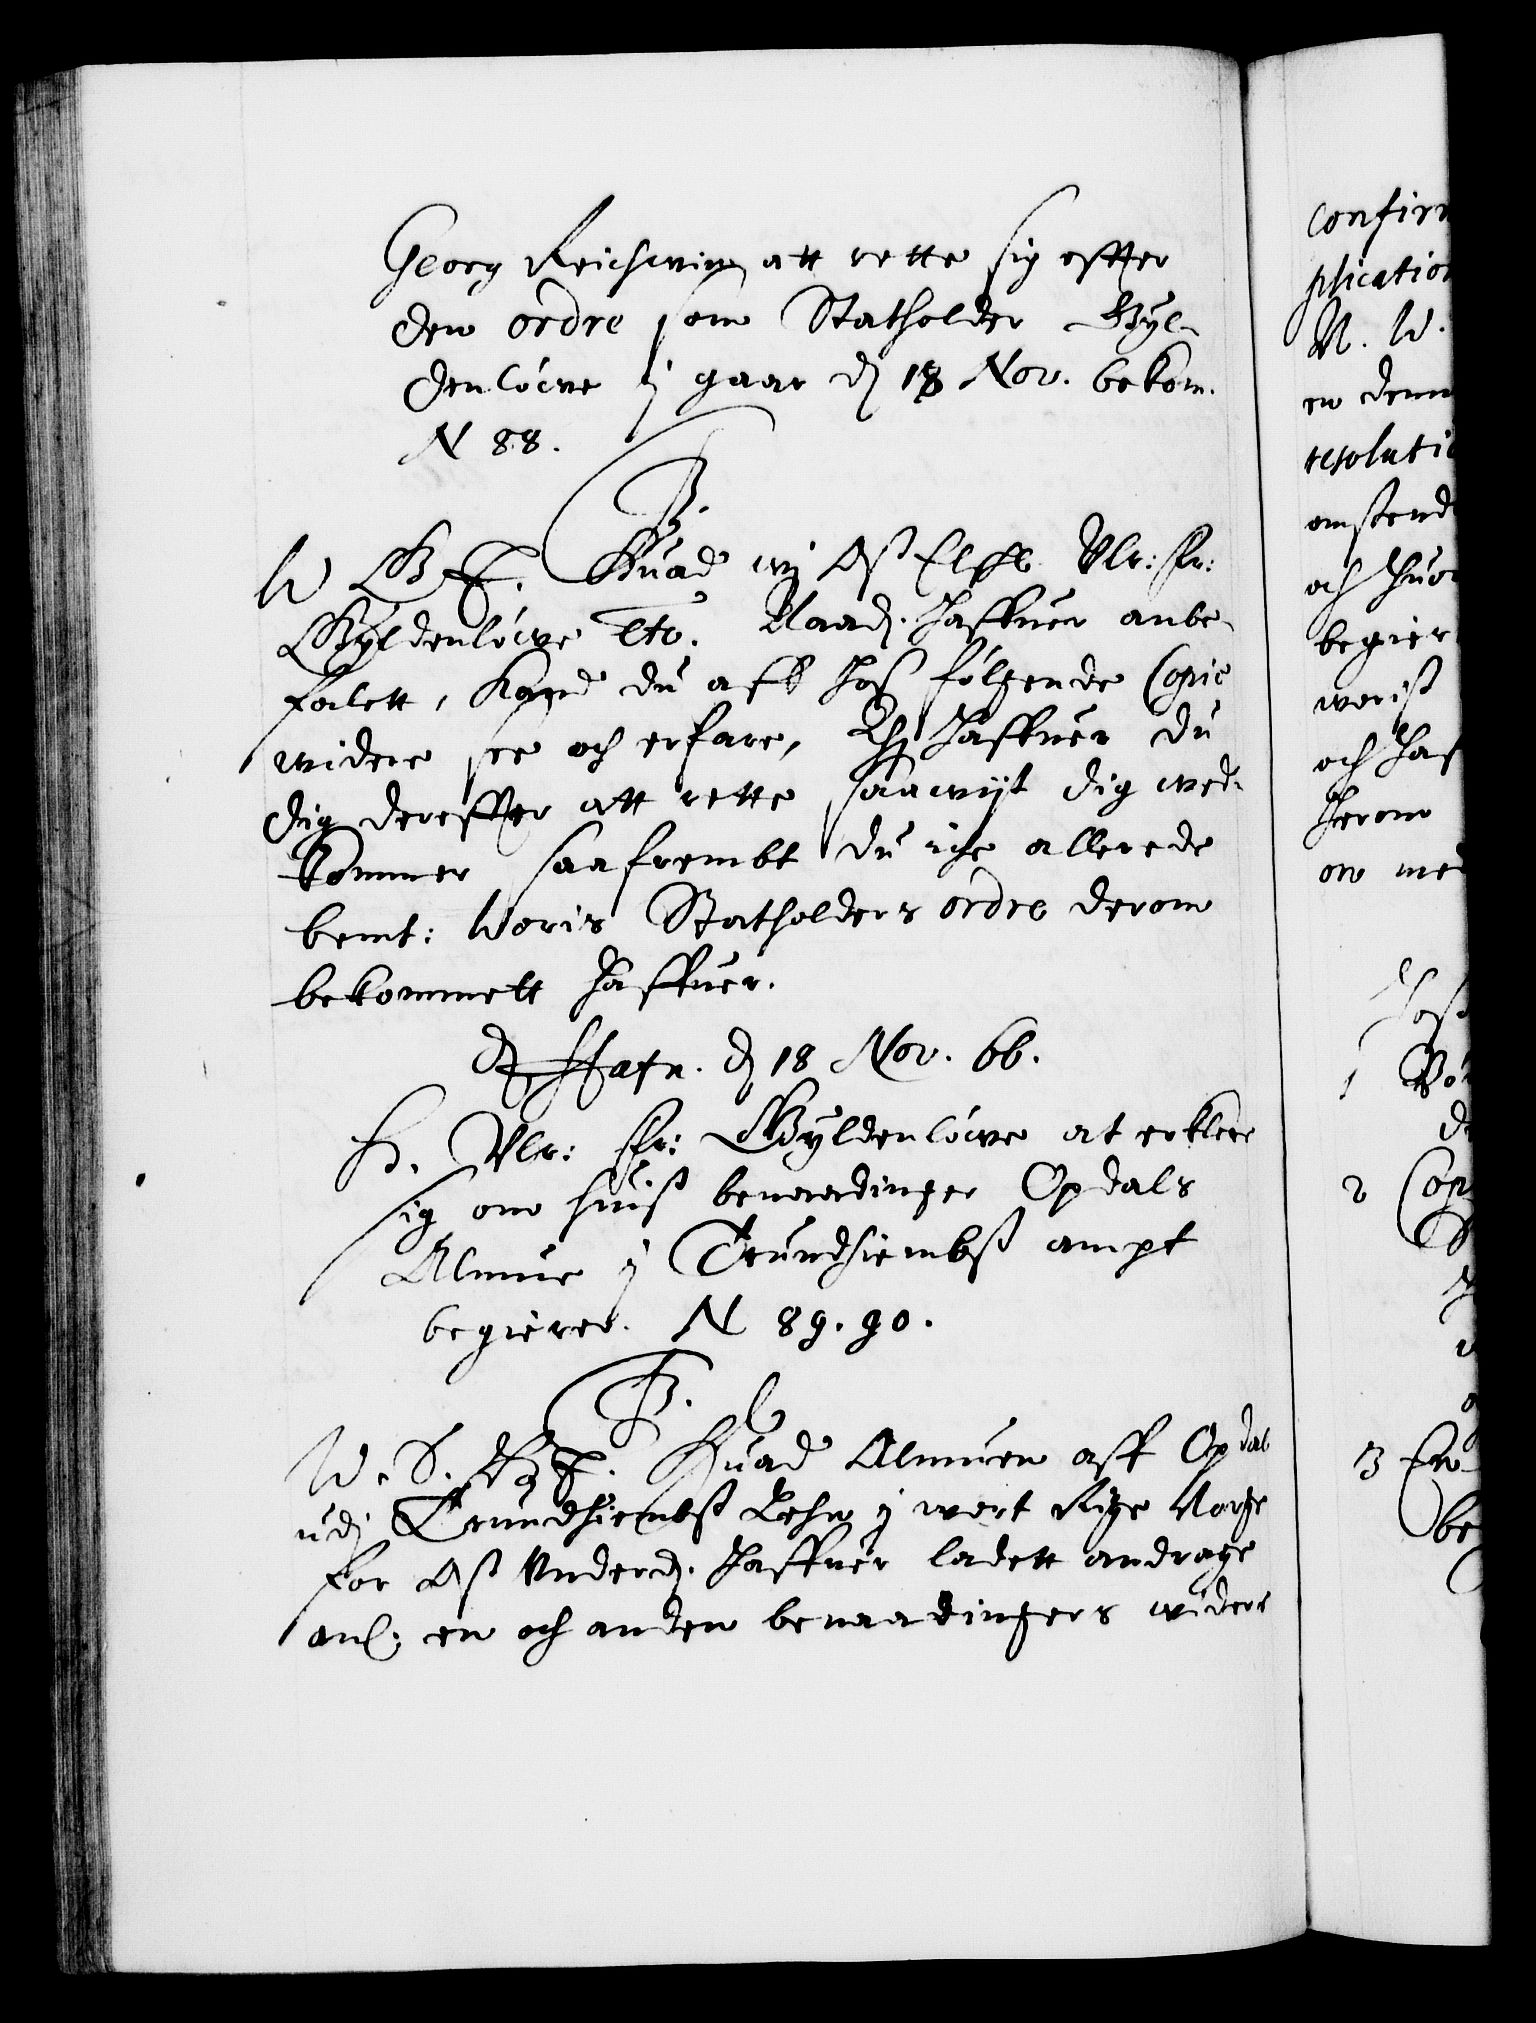 Georg Reichwein att rette sig effter
den ordre som Statholder Gyl-
denlöwe j gaar dj 18 Nov. bekom.
N 88.
B.
W G T. Huad wij Oss Elskl. Vlr: Fr:
Gyldenlöwe etc. Naadj. haffuer anbe-
falett, kand du aff hoss fölgende Copie
widere see och erfare, Thj haffuer du
dig dereffter att rette saawijt dig wed-
kommer saafrembt du iche allerede
bemt: Woris Statholders ordre derom
bekommett haffuer.
Hafn. dj 18 Nov. 66.
H. Vlr: Fr: Gyldenlöwe at erklere
sig om huis benaadinger Opdals
Almue j Trundhiembs ampt
begierer. N 89. 90.
B.
W. S. G T. Huad Almuen aff Opdal
udj Trundhiembs Lehn j wort Rige Norge
for Oss Underdj. haffuer ladett andrage
anl: en och anden benaadingers widere
confirm
plication
N. W.
en denn
resoluti
omstend
och huor
begier
worist
och haf
herom
om med
1
2 Cop
3 En
be